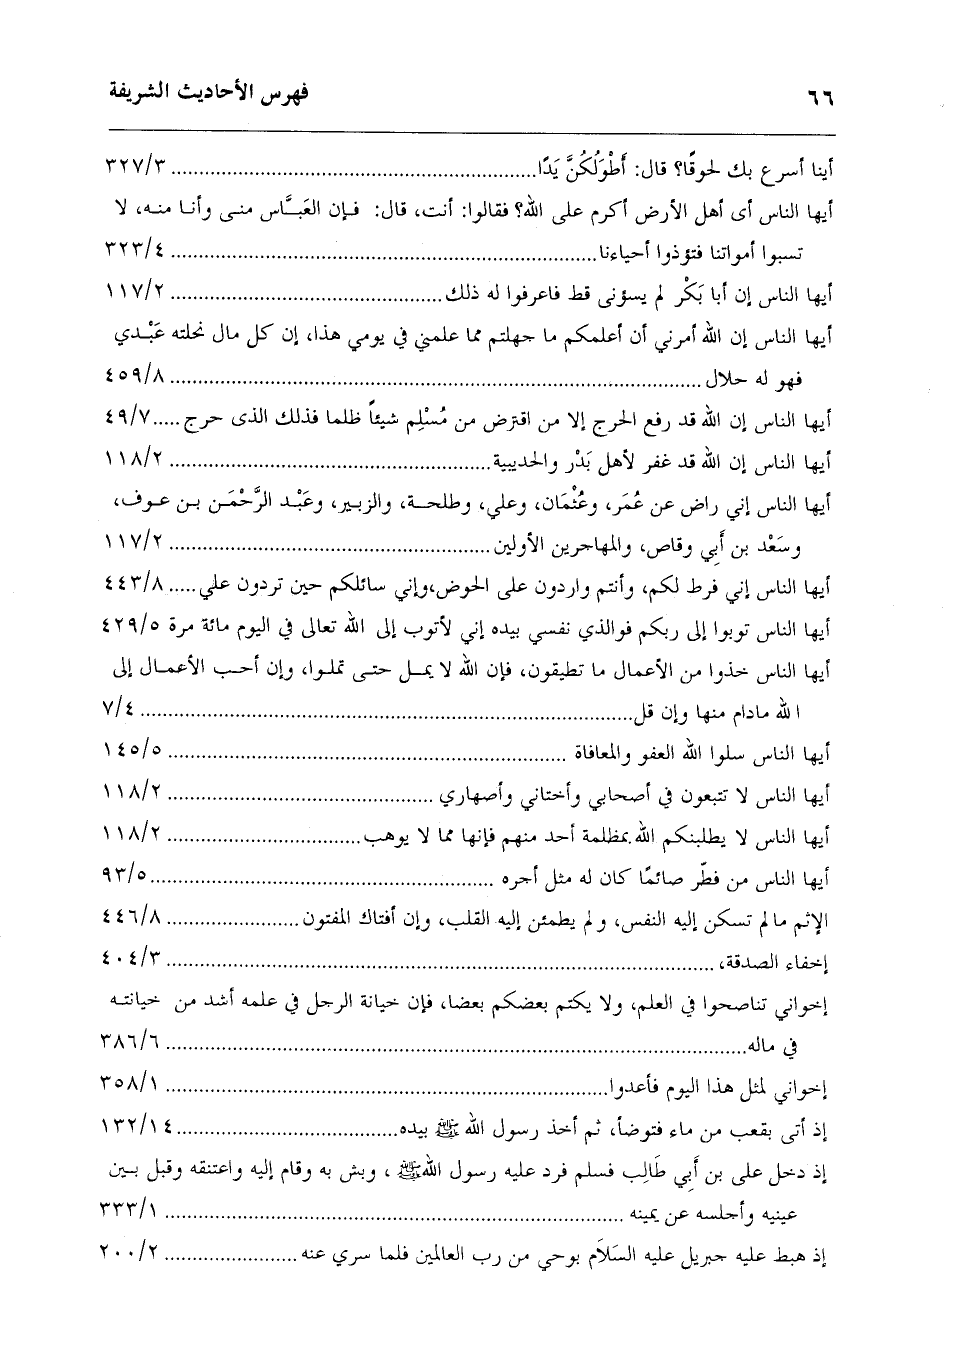 ٦٦ فهرس الأحاديث الشريفة
أينا أسرع بك لحوقًا؟ قال: أَطْوَلُكُنَّ يَدًا ........ ٣٢٧/٣
أيها الناس أى أهل الأرض أكرم على الله؟ فقالوا: أنت، قال: فإن العَبَّاس منى وأنا منه، لا
تسبوا أمواتنا فتؤذوا أحياءنا ........ ٣٢٣/٤
أيها الناس إن أبا بَكْر لم يسؤنى قط فاعرفوا له ذلك ........ ١١٧/٢
أيها الناس إن الله أمرني أن أعلمكم ما جهلتم مما علمني في يومي هذا، إن كل مال نحلته عَبْدي
فهو له حلال ........ ٤٥٩/٨
أيها الناس إن الله قد رفع الحرج إلا من اقترض من مُسْلِم شيئاً ظلما فذلك الذى حرج ..... ٤٩/٧
أيها الناس إن الله قد غفر لأهل بَدْر والحديبية ........ ١١٨/٢
أيها الناس إني راض عن عُمَر، وعُثْمَان، وعلي، وطلحة، والزبير، وعَبْد الرَّحْمَن بن عوف،
وسَعْد بن أَبِي وقاص، والمهاجرين الأولين ........ ١١٧/٢
أيها الناس إني فرط لكم، وأنتم واردون على الحوض،وإني سائلكم حين تردون علي ..... ٤٤٣/٨
أيها الناس توبوا إلى ربكم فوالذي نفسي بيده إني لأتوب إلى الله تعالى في اليوم مائة مرة ٤٢٩/٥
أيها الناس خذوا من الأعمال ما تطيقون، فإن الله لا يمل حتى تملوا، وإن أحب الأعمال إلى
الله مادام منها وإن قل ........ ٧/٤
أيها الناس سلوا الله العفو والمعافاة ........ ١٤٥/٥
أيها الناس لا تتبعون في أصحابي وأختاني وأصهاري ........ ١١٨/٢
أيها الناس لا يطلبنكم الله بمظلمة أحد منهم فإنها مما لا يوهب ........ ١١٨/٢
أيها الناس من فطّر صائمًا كان له مثل أجره ........ ٩٣/٥
الإثم مالم تسكن إليه النفس، ولم يطمئن إليه القلب، وإن أفتاك المفتون ........ ٤٤٦/٨
إخفاء الصدقة، ........ ٤٠٤/٣
إخواني تناصحوا في العلم، ولا يكتم بعضكم بعضا، فإن خيانة الرجل في علمه أشد من خيانته
في ماله ........ ٣٨٦/٦
إخواني لمثل هذا اليوم فأعدوا ........ ٣٥٨/١
إذ أتى بقعب من ماء فتوضأ، ثم أخذ رسول الله ﷺ بيده ........ ١٣٢/١٤
إذ دخل على بن أَبِي طَالِب فسلم فرد عليه رسول الله ﷺ ، وبش به وقام إليه واعتنقه وقبل بين
عينيه وأجلسه عن يمينه ........ ٣٣٣/١
إذ هبط عليه جبريل عليه السَلاَم بوحي من رب العالمين فلما سري عنه ........ ٢٠٠/٢